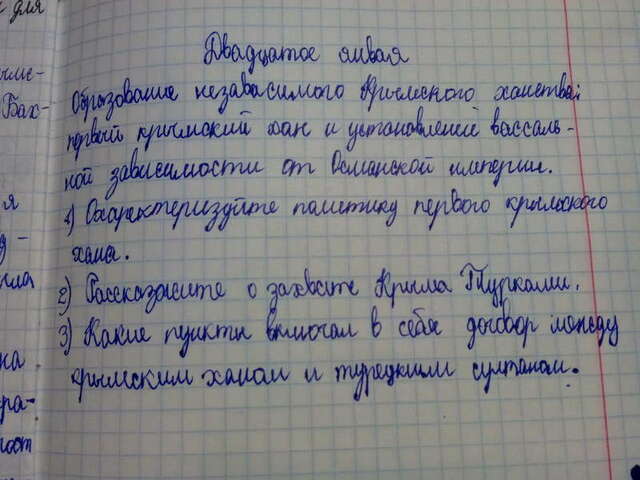 для
Двадцатое января
рыме-
Бах-
Образование независимого Крымского ханства:
первый крымский хан и установлений вассаль-
ной зависимости от Османской империи.
я
1) Охарактеризуйте политику первого крымского
хана.
2) Рассказжите о захвате Крыма Турками.
3) Какие пункты включал в себя договор между
на
крымским ханом и турецким султаном.
ра-